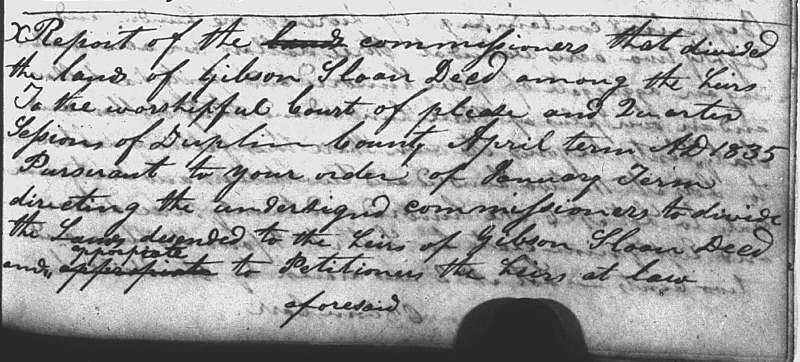 X Report of the lands commissioners that divided
the lands of Gibson Sloan Deed among the heirs
To the worshipful Court of please and Quarter
Sessions of Duplin County April term AD 1835
Pursurant to your order of January Term
directing the undersignd commissioners to divide
the Lands desended to the heirs of Gibson Sloan Deed
apporpiate
and, appropriate to Petitioners the heirs at law
aforesaid